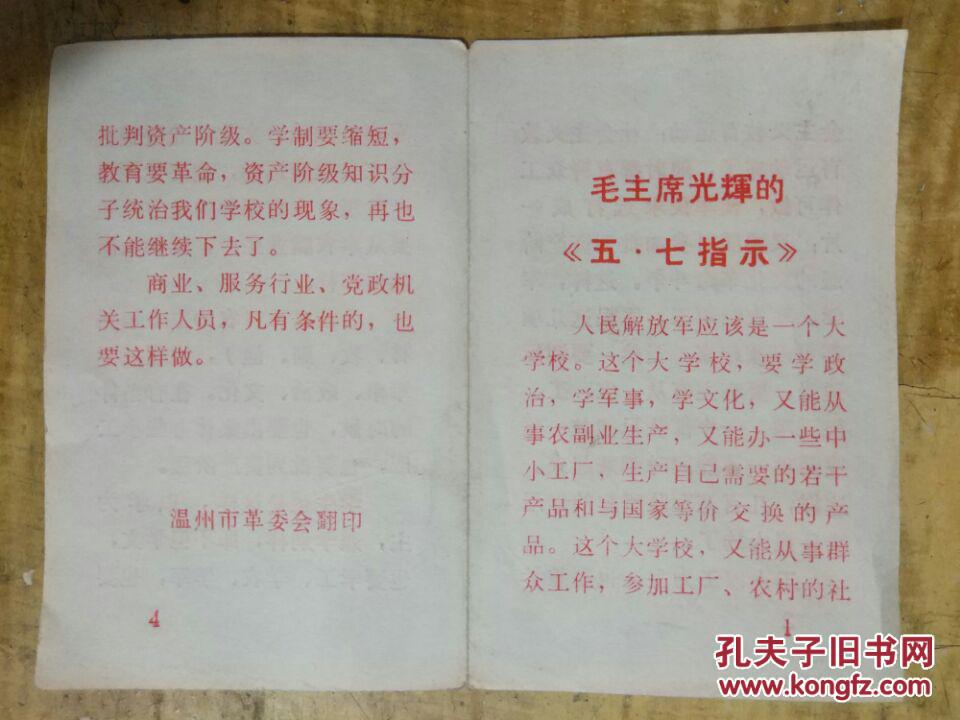 批判资产阶级。学制要缩短，
教育要革命，资产阶级知识分
子统治我们学校的现象，再也
不能继续下去了。
商业、服务行业、党政机
关工作人员，凡有条件的，也
要这样做。
温州市革委会翻印
4
毛主席光輝的
《五·七指示》
人民解放军应该是一个大
学校。这个大学校，要学政
治，学军事，学文化，又能从
事农副业生产，又能办一些中
小工厂，生产自己需要的若干
产品和与国家等价交换的产
品。这个大学校，又能从事群
众工作，参加工厂、农村的社
1
孔夫子旧书网
www.kongfz.com